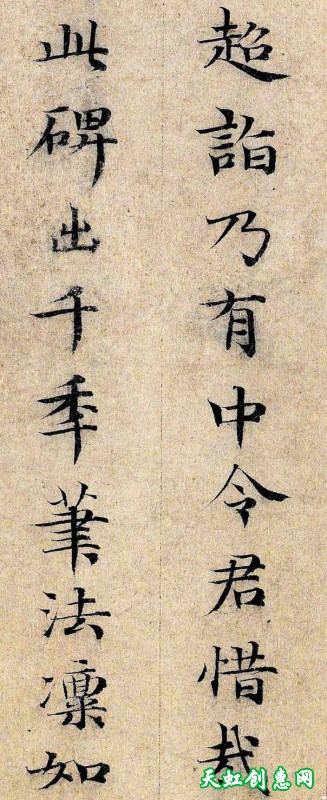 超詣乃有中令君惜哉
此碑出千年筆法凛如
天虹创惠网